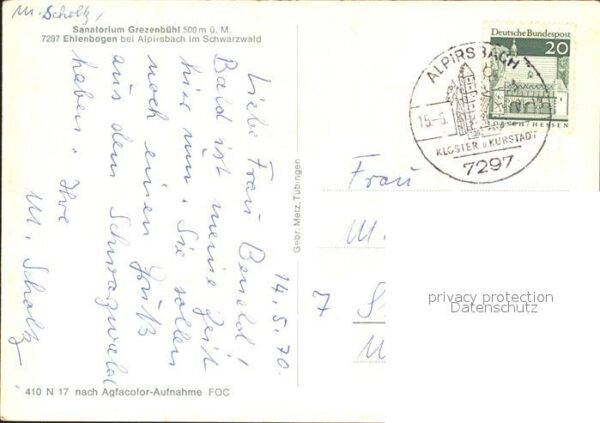 M. Scholz,
Sanatorium Grezenbühl 500 m ü. M.
7297 Ehlenbogen bei Alpirsbach im Schwarzwald
14.5.70
Liebe Frau
Bald ist meine Zeit
hier um. Sie sollen
noch einen Gruß
aus dem Schwarzwald
haben. Ihre
M. Scholz
410 N 17 nach Agfacolor-Aufnahme FOC
Gebr. Metz, Tübingen
Deutsche Bundespost
20
LORSCH/HESSEN
ALPIRSBACH
15.-5
KLOSTER u KURSTADT
7297
Frau
M.
7
privacy protection
Datenschutz